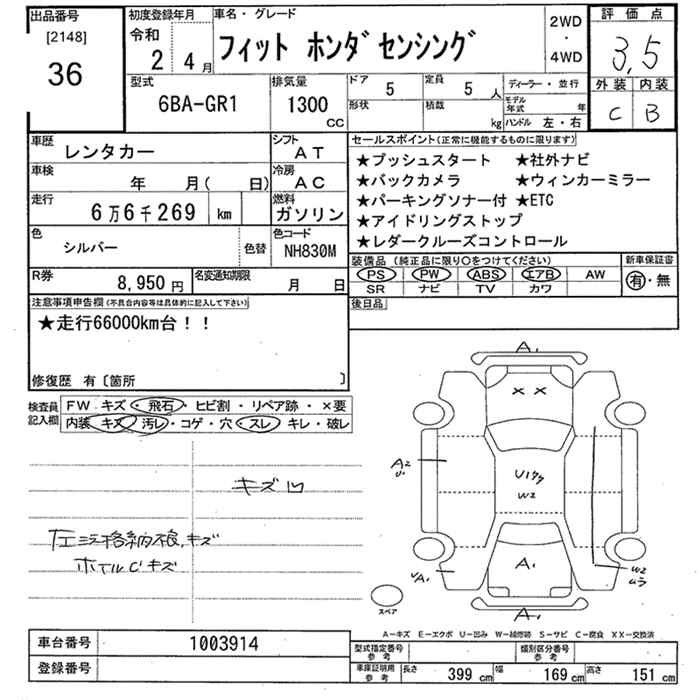 出品番号
[2148]
36
初度登録年月
令和
2 4月
車名・グレード
フィット ホンダセンシング
2WD
・
4WD
評価点
3,5
外装 内装
C B
型式
6BA-GR1
排気量
1300
CC
ドア
5
定員
5 人
形状
積載
kg
ディーラー・並行
モデル年式 年
ハンドル 左・右
車歴
レンタカー
シフト
AT
車検
年 月( 日)
冷房
AC
走行
6万6千269 km
燃料
ガソリン
色
シルバー
色替
色コード
NH830M
R券
8,950円
名変通知期限
月 日
セールスポイント(正常に機能するものに限ります)
★プッシュスタート ★社外ナビ
★バックカメラ ★ウィンカーミラー
★パーキングソナー付 ★ETC
★アイドリングストップ
★レダークルーズコントロール
装備品 (純正品に限り○をつけてください)
PS PW ABS エアB AW
SR ナビ TV カワ
新車保証書
有・無
後日品
注意事項申告欄(不具合内容等は具体的に記入して下さい)
★走行66000km台！！
修復歴 有〔箇所 〕
検査員
記入欄
FW キズ・飛石・ヒビ割・リペア跡・×要
内装 キズ 汚レ・コゲ・穴・スレ・キレ・破レ
キズ凹
キズ
ホイルCキズ
A1
××
A2
U1
U1ククク
W2
A1
A1
W2
ムラ
スペア
A1
A-キズ E-エクボ U-凹み W-補修跡 S-サビ C-腐食 XX-交換済
車台番号
1003914
登録番号
型式指定番号
参考
類別区分番号
参考
車庫証明用
参考
長さ 399 cm 幅 169 cm 高さ 151 cm